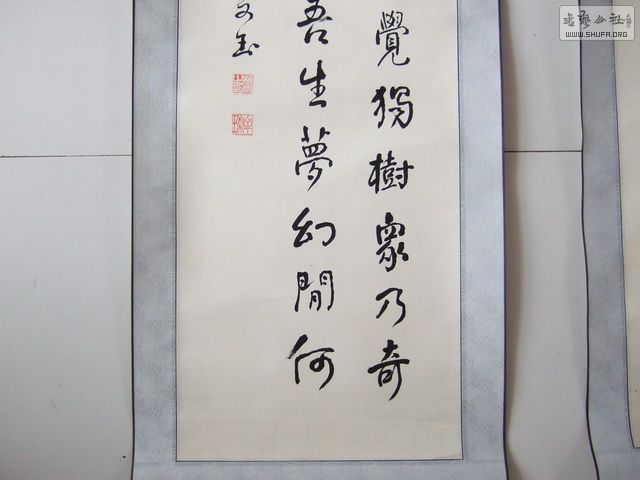 覺獨樹衆乃奇
吾生夢幻間何
書藝公社
WWW.SHUFA.ORG